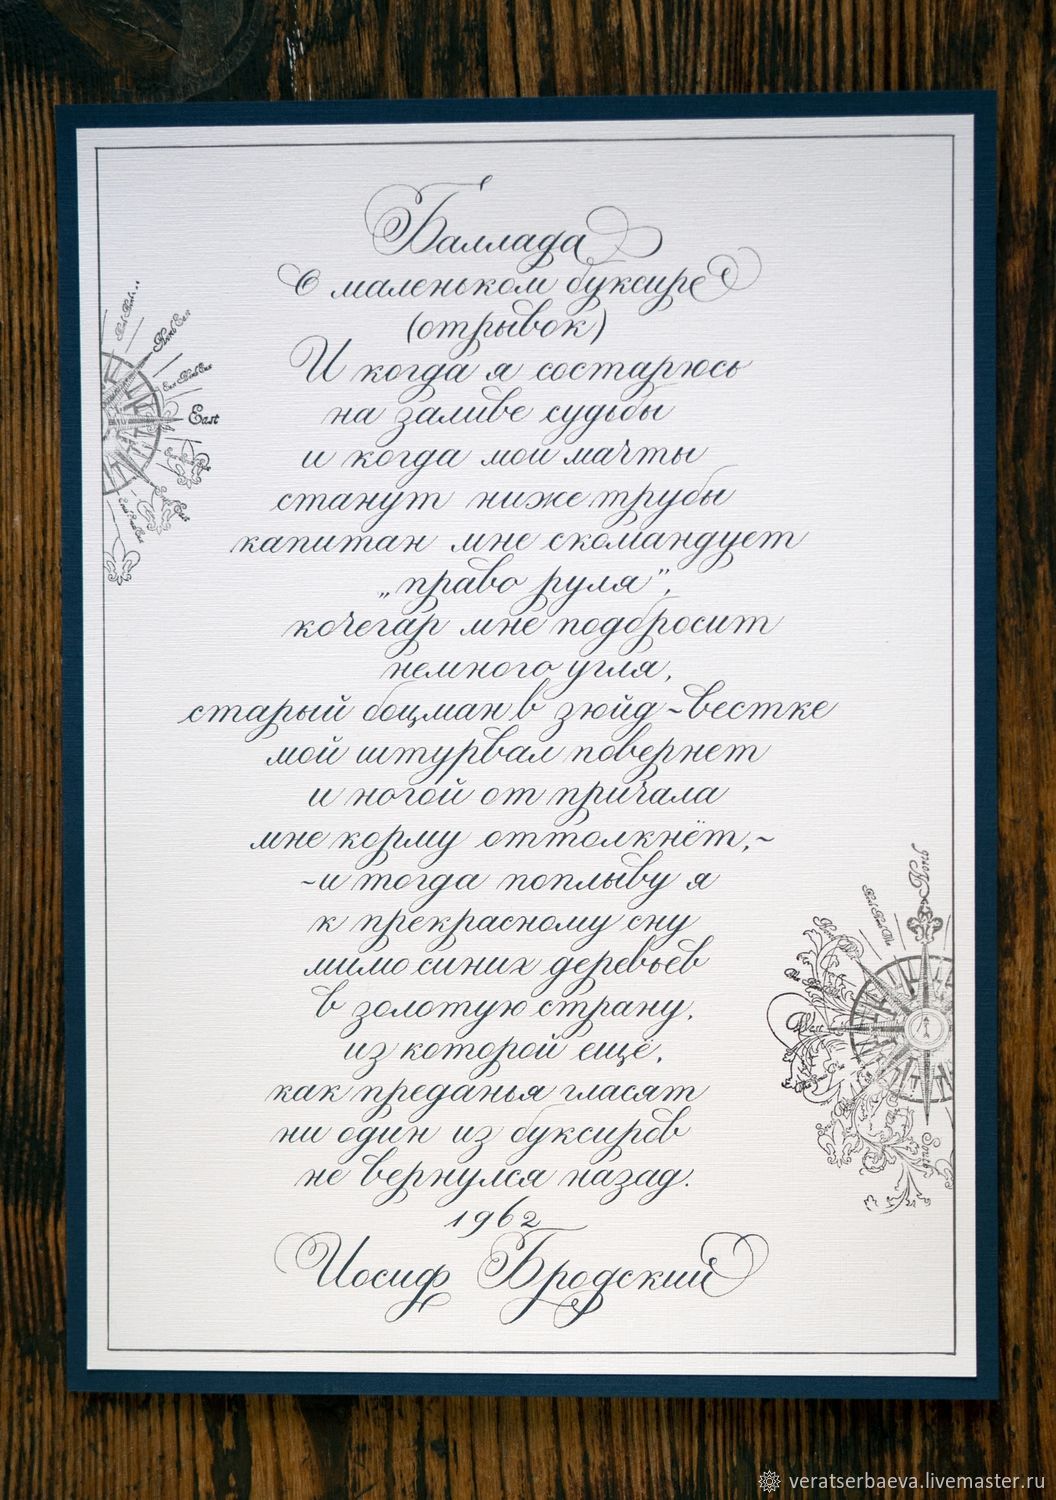 Баллада
о маленьком буксире
(отрывок)
И когда я состарюсь
на заливе судьбы
и когда мои мачты
станут ниже трубы
капитан мне скомандует
„право руля”,
кочегар мне подбросит
немного угля,
старый боцман в зюйд~вестке
мой штурвал повернет
и ногой от причала
мне корму оттолкнёт,~
~и тогда поплыву я
к прекрасному сну
мимо синих деревьев
в золотую страну,
из которой ещё,
как преданья гласят
ни один из буксиров
не вернулся назад.
1962
Иосиф Бродский
East
West
North
South
veratserbaeva.livemaster.ru